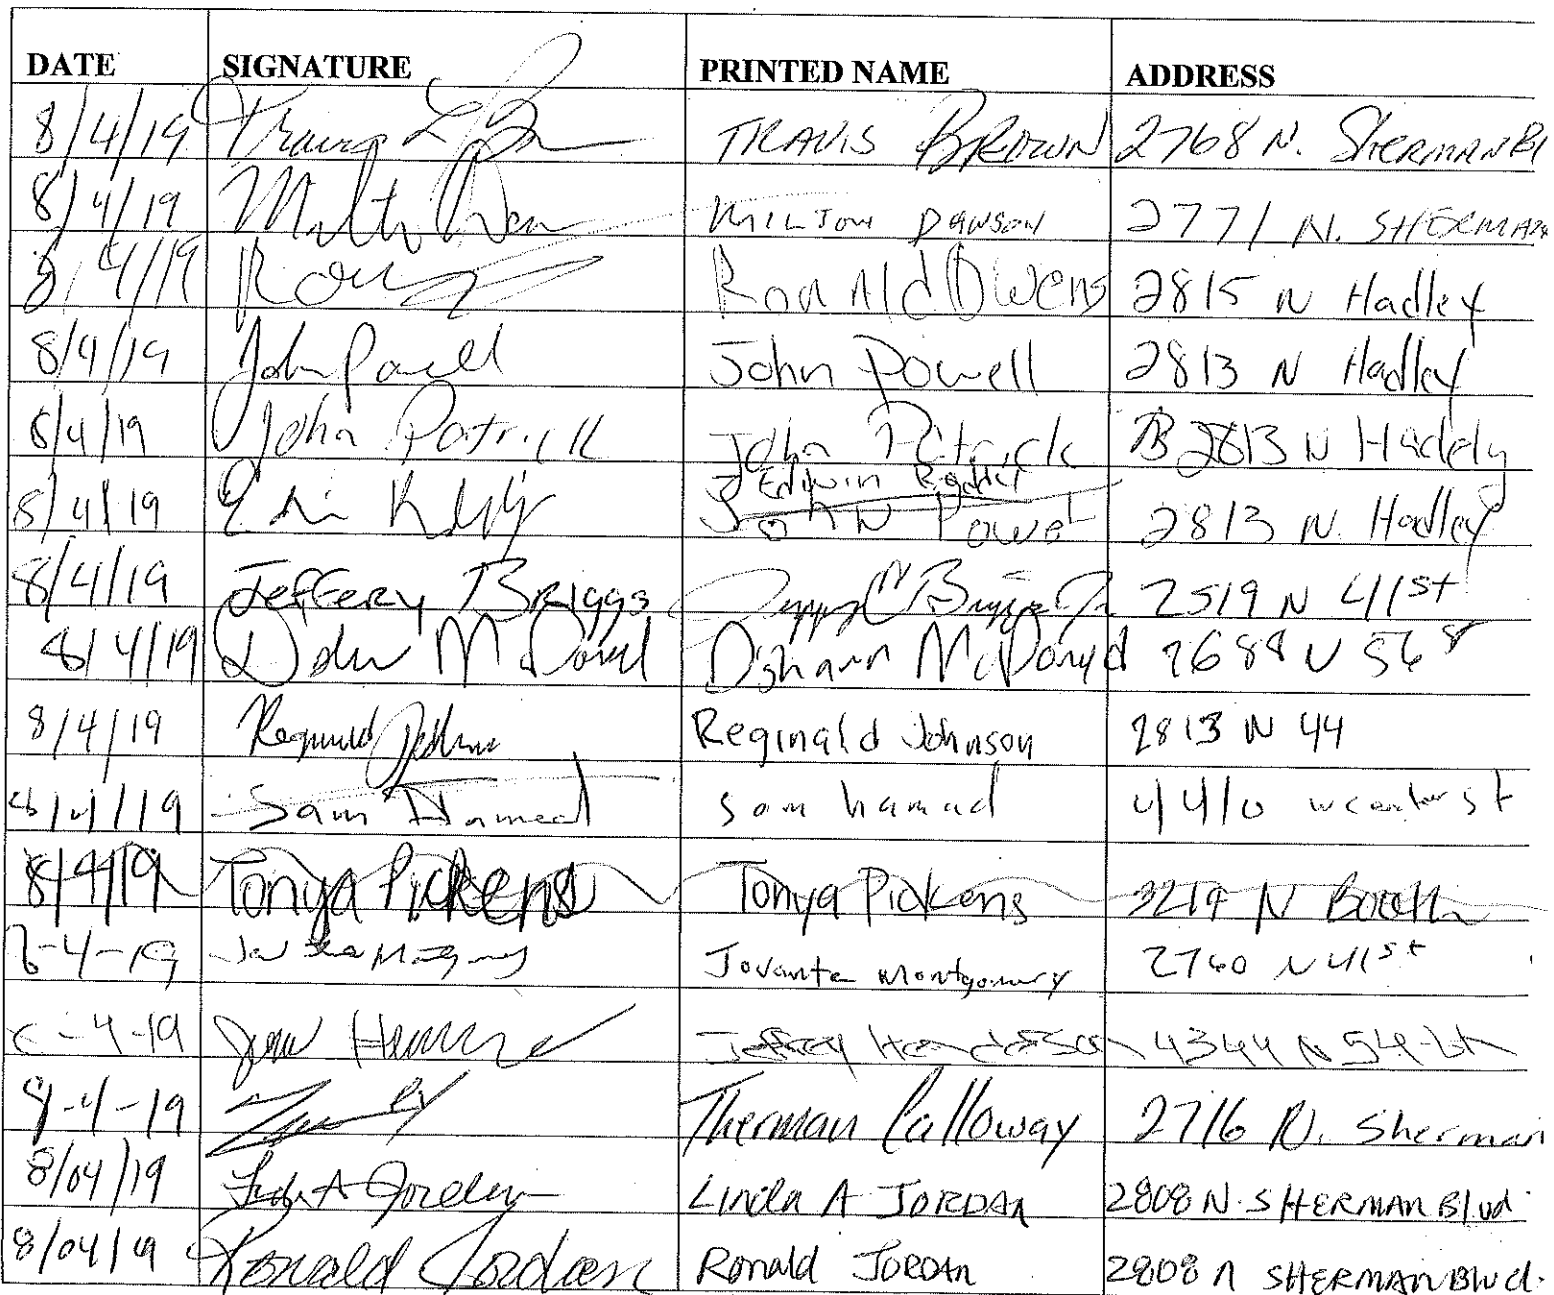 DATE SIGNATURE PRINTED NAME ADDRESS
8/4/19 Travis L B TRAVIS BROWN 2768 N. SHERMAN Bl
8/4/19 MILTON DAWSON 2771 N. SHERMAN
8/4/19 Ronald Owens 2815 N Hadley
8/4/19 John Powell John Powell 2813 N Hadley
8/4/19 John Patrick John Patrick 2813 N Hadely
Edwin
8/4/19 John Powel 2813 N. Hadley
8/4/19 Jeffery Briggs 2519 N 41st
8/4/19 McDonald 2688 N 56
8/4/19 Reginald Johnson Reginald Johnson 2813 N 44
8/4/19 Sam Hamed sam hamad 4410 w center st
8/4/19 Tonya Pickens Tonya Pickens 3219 N Booth
8-4-19 Jovante Montgomery 2760 N 41st
8-4-19 Jeffrey Henderson 4344 N 54th
8-4-19 Therman Calloway 2716 N. Sherman
8/04/19 Linda A Jorden Linda A JORDAN 2808 N. SHERMAN Blvd.
8/04/19 Ronald Jordan Ronald JORDAN 2808 N SHERMAN Blvd.